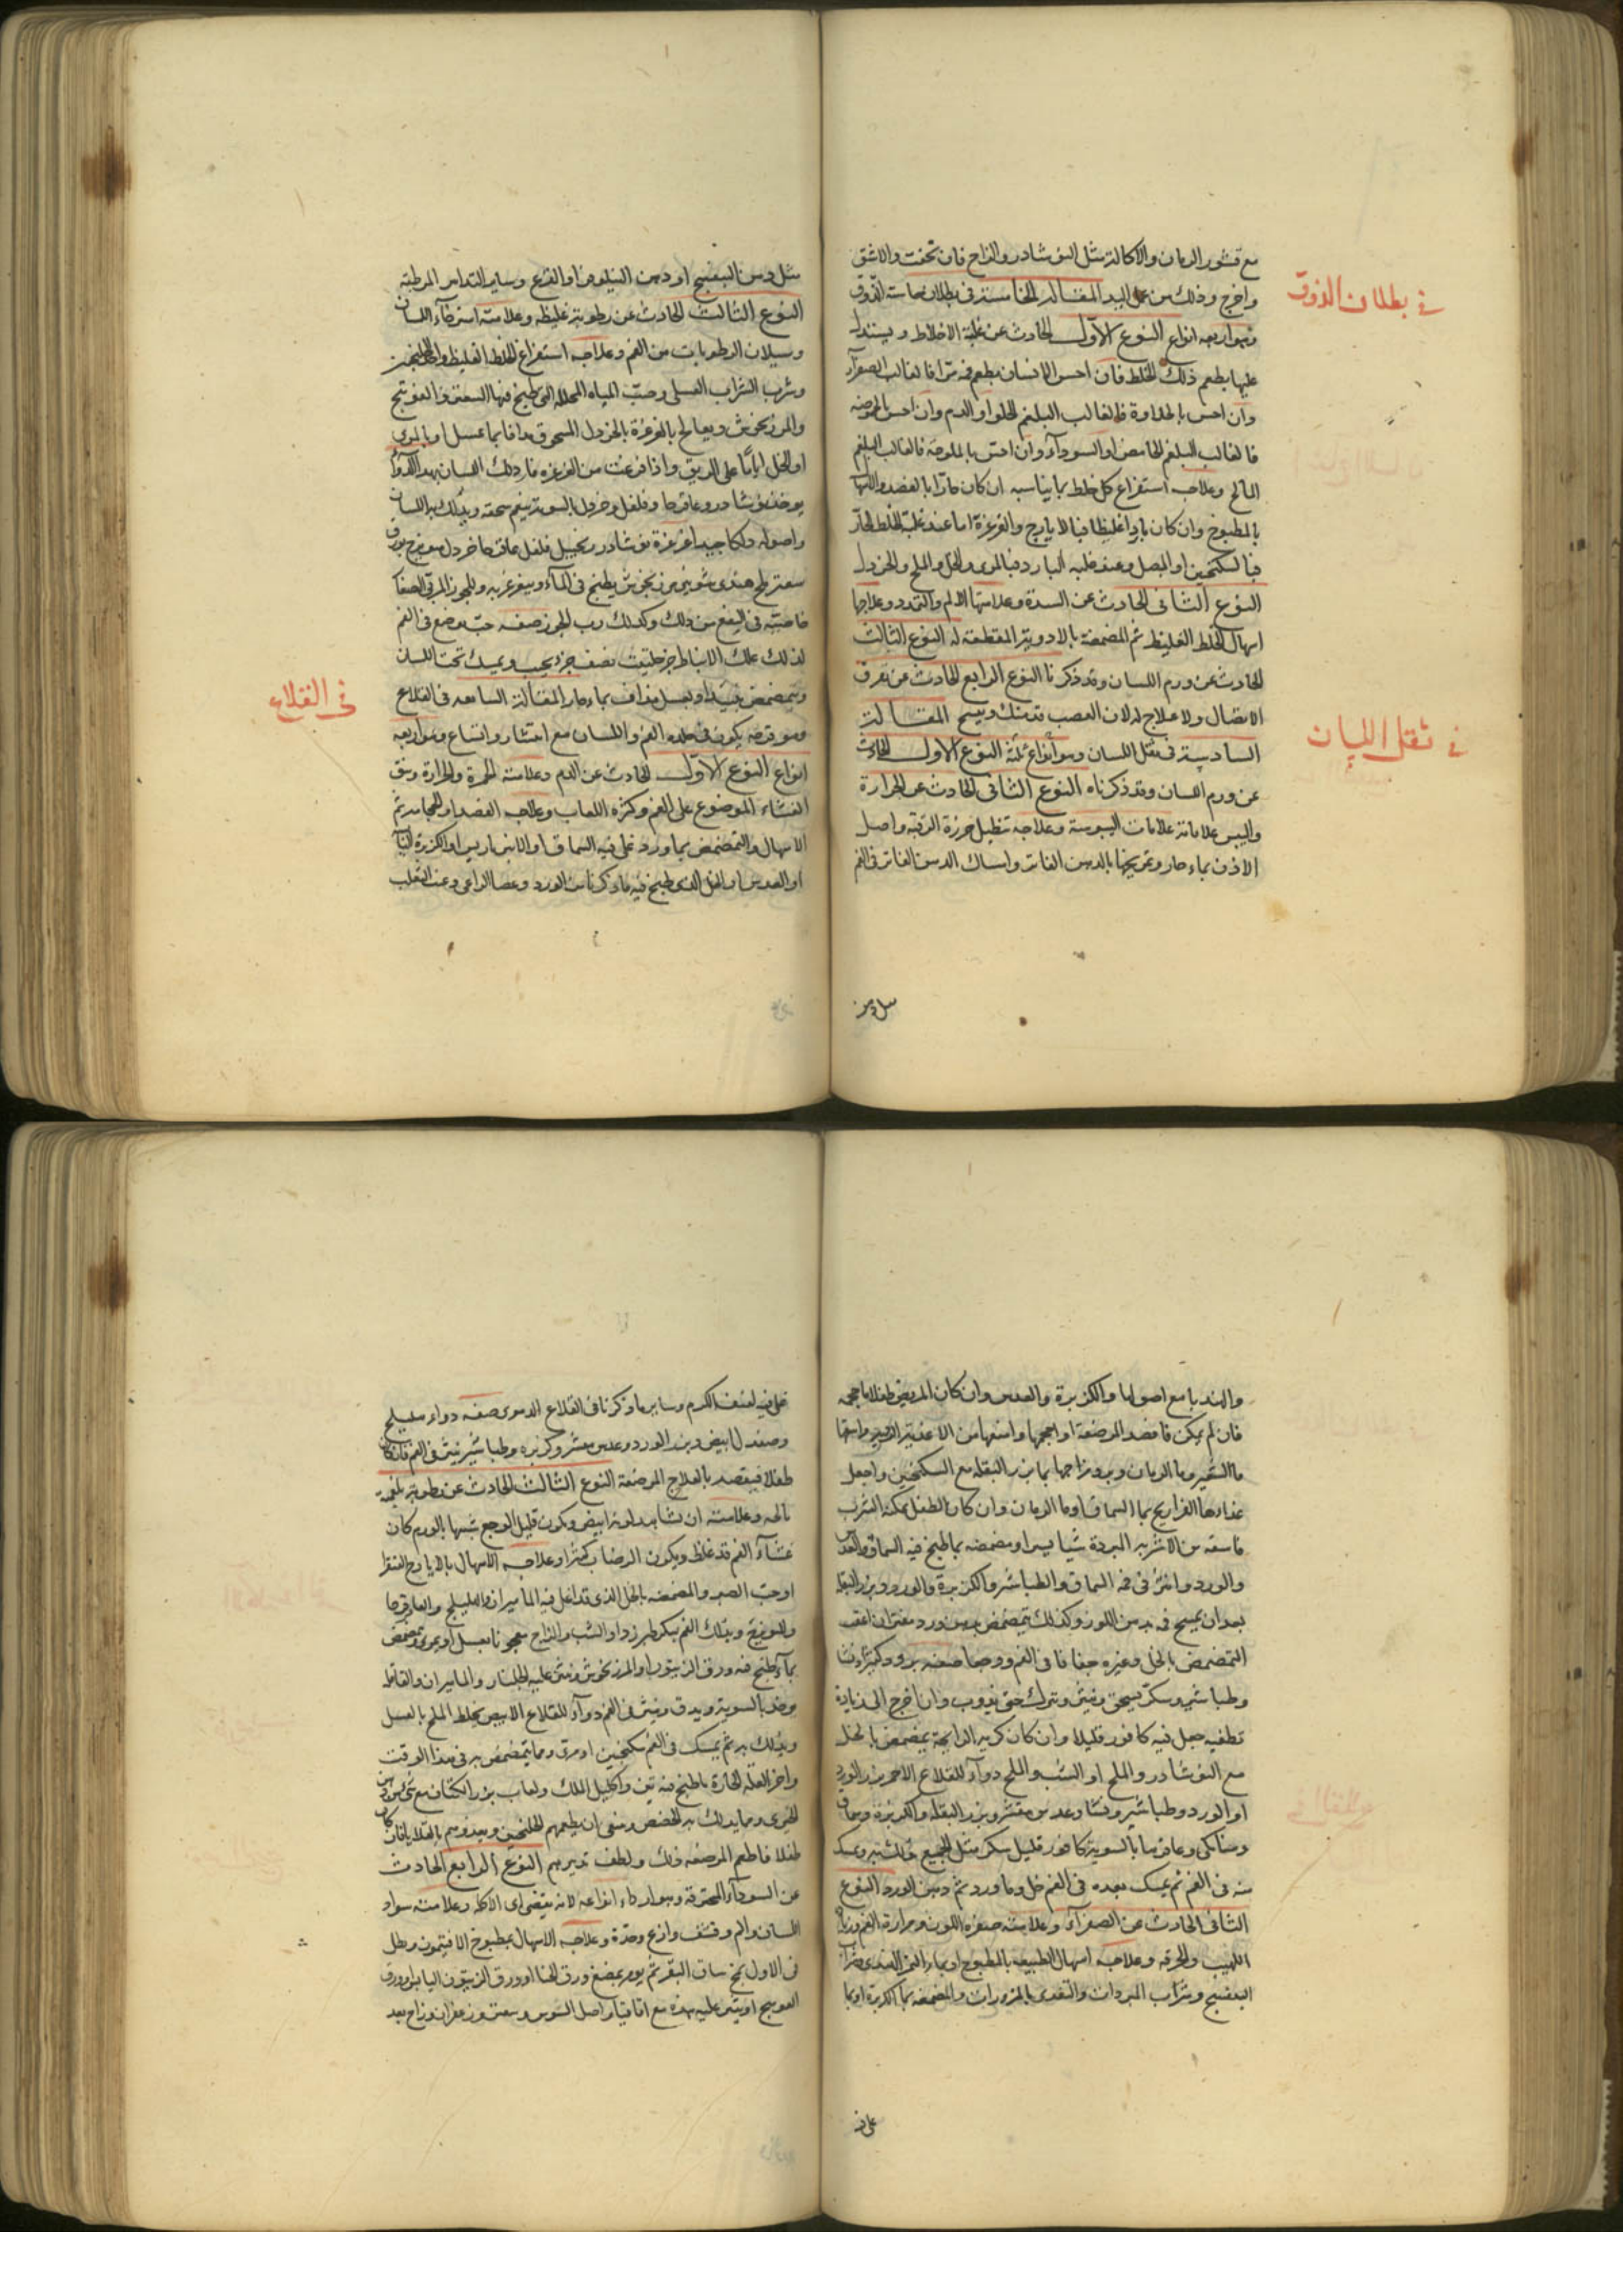 مع قشور الرمان والاكالة مثل النوشادر والزاج فان تحفت والا شق
واخرج وذلك من عمل اليد المقالة الخامسة في بطلان حاسة الذوق
في بطلان الذوق
وهو اربعة انواع النوع الاول الحادث عن غلبة الاخلاط ويستدل
عليها بطعم ذلك الخلط فان احس الانسان بطعم فمه مرا فالغالب الصفرآء
وان احس بالحلاوة فالغالب البلغم الحلو او الدم وان احس بالحموضة
فالغالب البلغم الحامض او السودآء وان احس بالملوحة فالغالب البلغم
المالح وعلاجه استفراغ كل خلط بما يناسبه ان كان حارا بالفصد والاسهال
بالمطبوخ وان كان باردا غليظا فبالايارج والغرغرة اما عند غلبة الخلط الحار
فبالسكنجبين او البصل وعند غلبة البارد فبالمرى والخل والملح والخردل
النوع الثانى الحادث عن السدة وعلامتها الالم والتمدد وعلاجها
اسهال الخلط الغليظ ثم المضمضة بالادوية المقطعة له النوع الثالث
الحادث عن ورم اللسان وقد ذكرنا النوع الرابع الحادث عن تفرق
الاتصال ولا علاج له لان العصب المقالة
في ثقل اللسان
السادسة في ثقل اللسان وهو انواع ثلثة النوع الاول الحادث
عن ورم اللسان وقد ذكرناه النوع الثانى الحادث عن الحرارة
واليبس علاماته علامات اليبوسة وعلاجه تنطيل خرزة الرقبة واصل
الاذن بماء حار وتمريخها بالدهن الفاتر وامساك الدهن الفاتر في الفم
مثل دهن
مثل دهن البنفسج او دهن النيلوفر او القرع وساير التدابير المرطبة
النوع الثالث الحادث عن رطوبة غليظة وعلامته استرخآء اللسان
وسيلان الرطوبات من الفم وعلاجه استفراغ الخلط الغليظ
وشرب الشراب العسلى وصب المياه المحللة التى طبخ فيها السعتر والفوتنج
والمرزنجوش ويعالج بالغرغرة بالخردل المسحوق مدافا بماء عسل او بالمرى
او الخل اياما على الريق واذا فرغت من الغرغرة فادلك اللسان بهذا الدوآء
يوخذ نوشادر وعاقرقرحا وفلفل وخردل بالسوية ينعم سحقه ويدلك به اللسان
واصوله دلكا جيدا غرغرة نوشادر زنجبيل فلفل عاقرقرحا خردل بورق
سعتر ملح هندى شونيز مرزنجوش يطبخ في المآء ويتغرغر به
خاصية في النفع من ذلك وكذلك رب الجوز صفة حب يوضع في الفم
لذلك علك الانباط جز حلتيت نصف جزء يحبب ويمسك تحت اللسان
ويتمضمض بماء حار المقالة السابعة في القلاع
في القلاع
وهو قرحة يكون في جلدة الفم واللسان مع انتشار واتساع وهو اربعة
انواع النوع الاول الحادث عن الدم وعلامته الحمرة والحرارة
الغشاء الموضوع على الفم وكثرة اللعاب وعلاجه الفصد او الحجامة ثم
الاسهال والتمضمض بماورد على فيه السماق او الانبرباريس او الكزبرة
او العدس او الخل الذى طبخ فيه ماذكرنا من الورد وعصا الراعى وعنب الثعلب
والهندبا مع اصولها والكزبرة والعدس وان كان المريض طفلا فاحجمه
فان لم يمكن فافصد المرضعة او احجمها وامنعها من الاغذية الردية واسقها
ماالشعير وما الرمان وبرد مزاجها بماء بزر البقلة مع السكنجبين واجعل
غذاءها الفراريج بماء السماق او ما الرمان وان كان الطفل يمكنه الشرب
فاسقه من الاشربة المبردة شيا يسيرا ومضمضه بما طبخ فيه السماق والعدس
والورد وانثر في فمه السماق والطباشير والكزبرة والورد وبزر البقلة
بعد ان يمسح فمه بدهن اللوز وكذلك يتمضمض بدهن ورد مفتر ان اعقب
التمضمض بالخل وغيره جفافا في الفم ووجعا صفة برود
وطباشير وسكر يسحق وينثر ويترك حتى يذوب وان احوج الى زيادة
تطفية جعل فيه كافور قليلا وان كان كريه الرايحة يمضمض بالخل
مع النوشادر والملح او الشب والملح دوآء للقلاع الاحمر بزر الورد
او الورد وطباشير ونشا وعدس مقشر وبزر البقلة والكزبرة وسماق
وعاقرقرحا بالسوية كافور قليل سكر مثل الجميع يدلك به ويمسك
منه في الفم ثم يمسك بعده في الفم خل وماورد ثم دهن الورد النوع
الثانى الحادث عن الصفرآء وعلامته صفرة اللون ومرارة الفم وزيادة
اللهيب والحرقة وعلاجه اسهال الطبيعة بالمطبوخ او بماء
البنفسج وشراب المبردات والتغذى بالمزورات والمضمضة بماء الكزبرة او بما
على فيه
على فيه الكرم وساير ماذكرنا في القلاع الدموى صفة دواء هليلج
وصندل ابيض وبزر الورد وعدس مقشر وكزبره وطباشير ينثر في الفم فان كان
طفلا فيقصد بالعلاج المرضعة النوع الثالث الحادث عن رطوبة بلغمية
مالحه وعلامته ان تشاهد لونه ابيض ويكون قليل الوجع شبيها بالورم كان
غشآء الفم قد غلظ ويكون الرضاب كثيرا وعلاجه الاسهال بالايارج الفيقرا
او حب الصبر والمضمضة بالخل الذى قد اغلى فيه الماميران والهليلج والعاقرقرحا
والمويزج ويدلك الفم بسكر طبرزد او الشب والزاج معجونا بعسل او بمرى ويتمضمض
بمآء طبخ فيه ورق الزيتون او المرزنجوش وينثر عليه الجلنار والماميران والقاقلة
بالسوية ويدق وينثر في الفم دوآء للقلاع الابيض يخلط الملح بالعسل
ويدلك به ثم يمسك في الفم سكنجبين او مرى ومما يتمضمض به في هذا الوقت
واخر العلة الحارة ماطبخ فيه تين واكليل الملك ولعاب بزر الكتان مع شئ من دهن
الخيرى ومما يدلك به الحضض وينبغى ان يطعمهم الخلنجبين وبعدونهم بالقلايا فان كان
طفلا فاطعم المرضعة ذلك ولطف تدبيرهم النوع الرابع الحادث
عن السودآء المحترقة وهو ارداء انواعه لانه يفضى الى الاكلة وعلامته سواد
اللسان والم وقشف ولذع وحدة وعلاجه الاسهال بمطبوخ الافتيمون وطلى
في الاول بمخ ساق البقر ثم يومر بمضغ ورق الحنا او ورق الزيتون اليابس او ورق
العوسج او ينثر عليه هذه مع اقاقيا واصل السوس وسعتر وزعفران وزاج بعد